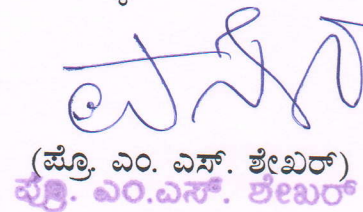 (ಪ್ರೊ. ಎಂ. ಎಸ್. ಶೇಖರ್)
ಪ್ರೊ. ಎಂ.ಎಸ್. ಶೇಖರ್